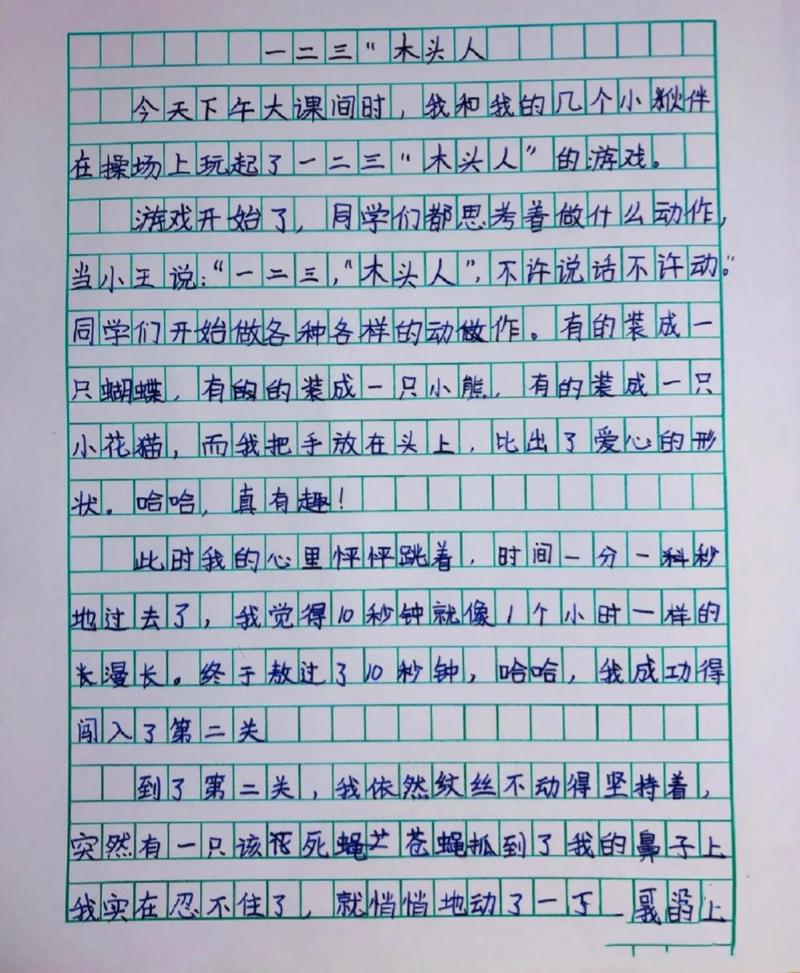 一二三“木头人
今天下午大课间时，我和我的几个小伙伴
在操场上玩起了一二三“木头人”的游戏。
游戏开始了，同学们都思考着做什么动作，
当小王说：“一二三，“木头人”，不许说话不许动。”
同学们开始做各种各样的动做作。有的装成一
只蝴蝶，有的的装成一只小熊，有的装成一只
小花猫，而我把手放在头上，比出了爱心的形
状。哈哈，真有趣！
此时我的心里怦怦跳着，时间一分一科秒
地过去了，我觉得10秒钟就像1个小时一样的
长漫长。终于熬过了10秒钟，哈哈，我成功得
闯入了第二关
到了第二关，我依然纹丝不动得坚持着，
突然有一只该死死蝇苍蝇抓到了我的鼻子上
我实在忍不住了，就悄悄地动了一下